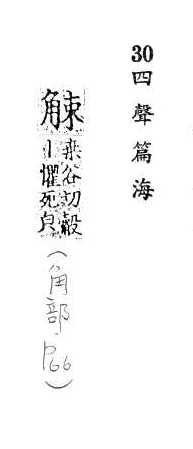 30四聲篇海
觫
桒谷切觳
懼死皃
(角部,P66)